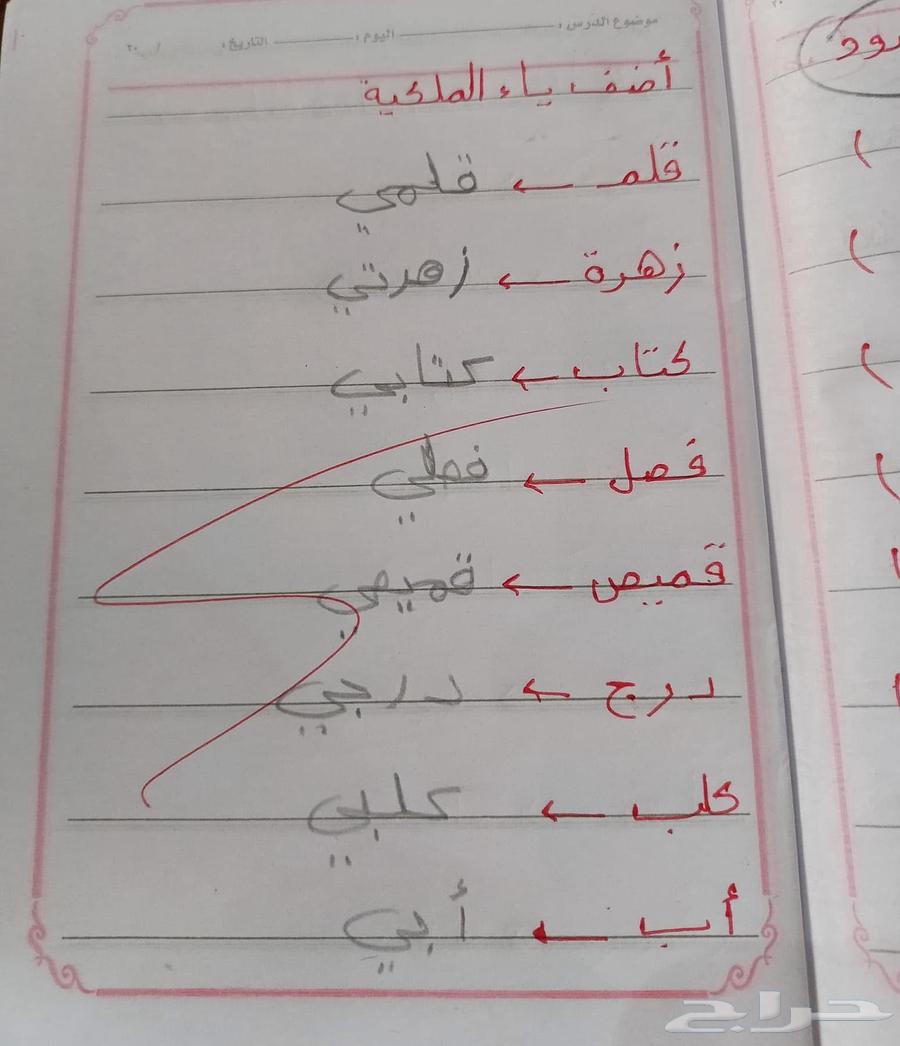 موضوع الدرس : اليوم : التاريخ : / ٢٠
أضف ياء الملكية
قلم ← قلمي
زهرة ← زهرتي
كتاب ← كتابي
فصل ← فصلي
قميص ← قميصي
درج ← درجي
كلب ← كلبي
أب ← أبي
حراج